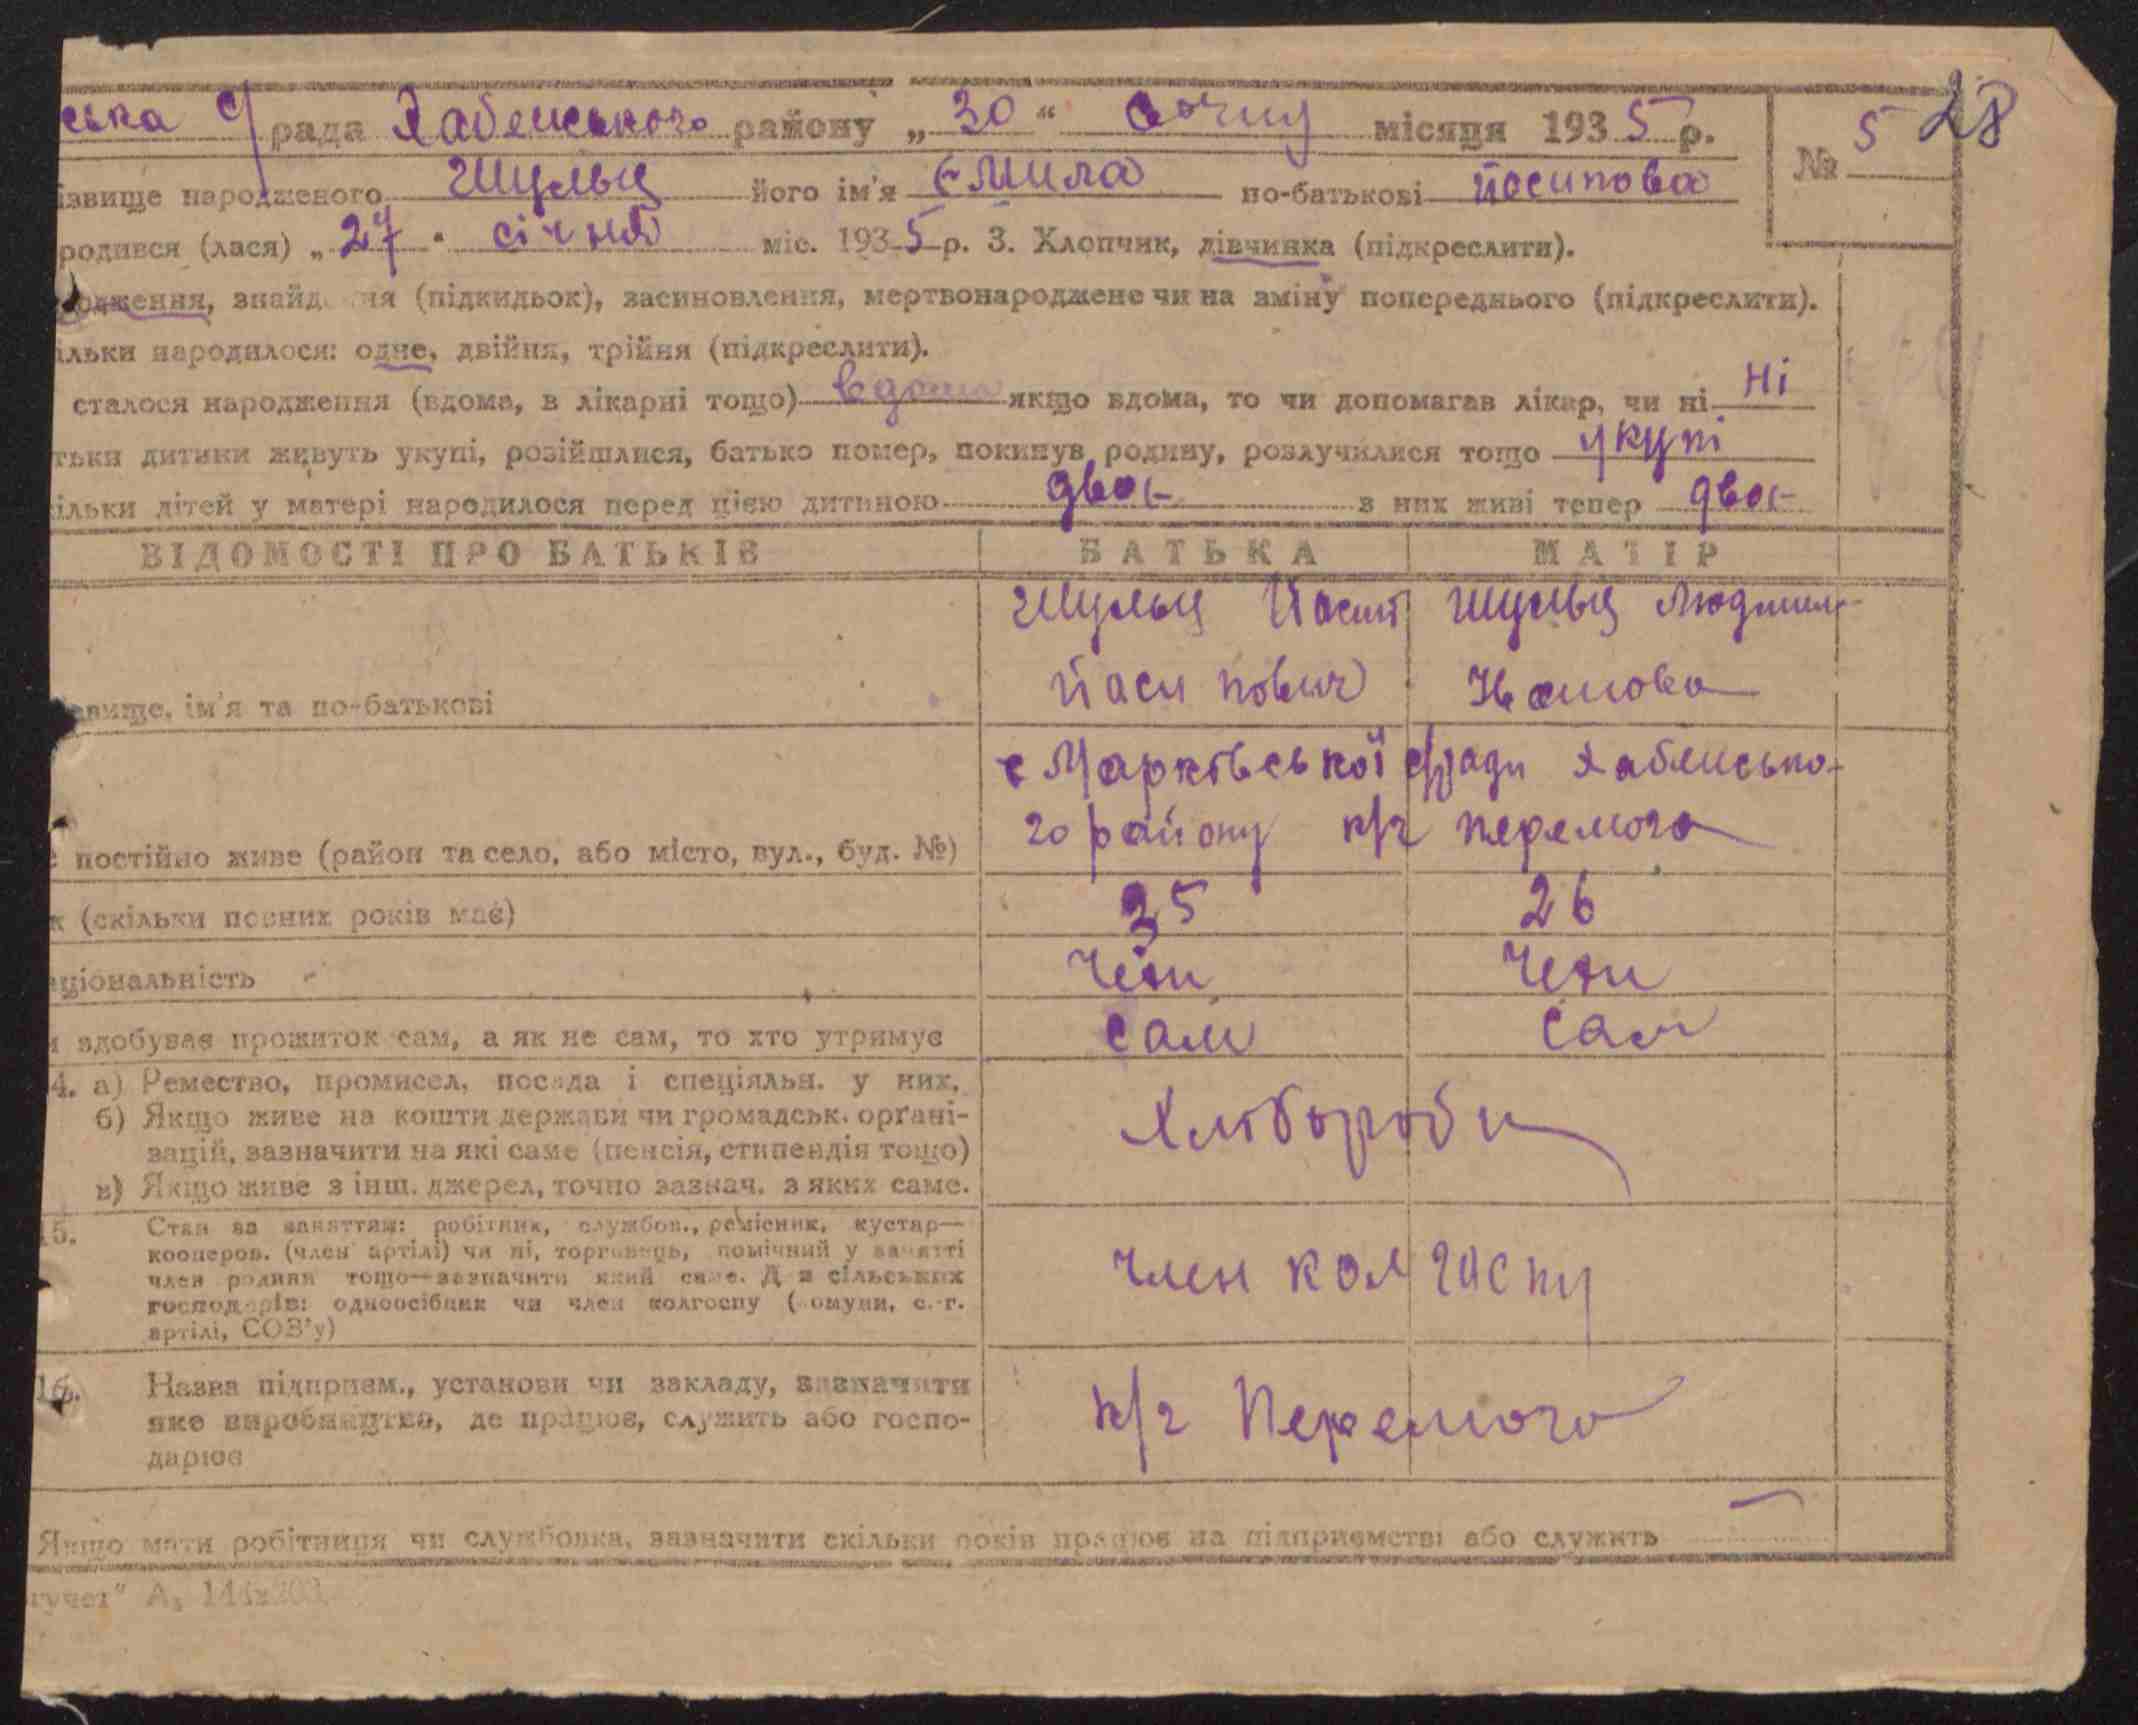 ська с/рада Хабенського району „30“ січня місяця 1935 р.
№ 5 28
ізвище народженого Шульц його ім'я Еміла по-батькові Йосипова
родився (лася) „27“ січня міс. 1935 р. 3. Хлопчик, дівчинка (підкреслити).
одження, знайд ня (підкидьок), засиновлення, мертвонароджене чи на зміну попереднього (підкреслити).
ільки народилося: одне, двійня, трійня (підкреслити).
сталося народження (вдома, в лікарні тощо) вдома якщо вдома, то чи допомагав лікар, чи ні Ні
тьки дитини живуть укупі, розійшлися, батько помер, покинув родину, розлучилися тощо укупі
ільки дітей у матері народилося перед цією дитиною двоє з них живі тепер двоє
ВІДОМОСТІ ПРО БАТЬКІВ БАТЬКА МАТІР
Шульц Йосип Шульц Людмила
звище, ім'я та по-батькові Йосипович
с Марківської с/ради Хабенсько-
е постійно живе (район та село, або місто, вул., буд. №) го району к/г перемога
к (скільки повних років має) 35 26
ціональність Чехи Чехи
и здобуває прожиток сам, а як не сам, то хто утримує сам сам
4. а) Ремество, промисел, посада і спеціяльн. у них.
б) Якщо живе на кошти держави чи громадськ. органі-
зацій, зазначити на які саме (пенсія, стипендія тощо) Хлібороби
в) Якщо живе з інш. джерел, точно зазнач. з яких саме.
15. Стан за заняттям: робітник, службов., ремісник, кустар—
кооперов. (член артілі) чи ні, торговець, помічний у занятті
член родини тощо—зазначити який саме. Для сільських
господарів: одноосібник чи член колгоспу (комуни, с.-г.
артілі, СОЗ'у) член колгоспу
16. Назва підприєм., установи чи закладу, зазначити
яке виробництво, де працює, служить або госпо-
дарює к/г Перемога
Якщо мати робітниця чи службовка, зазначити скільки років працює на підприємстві або служить —
гучет“ А₅